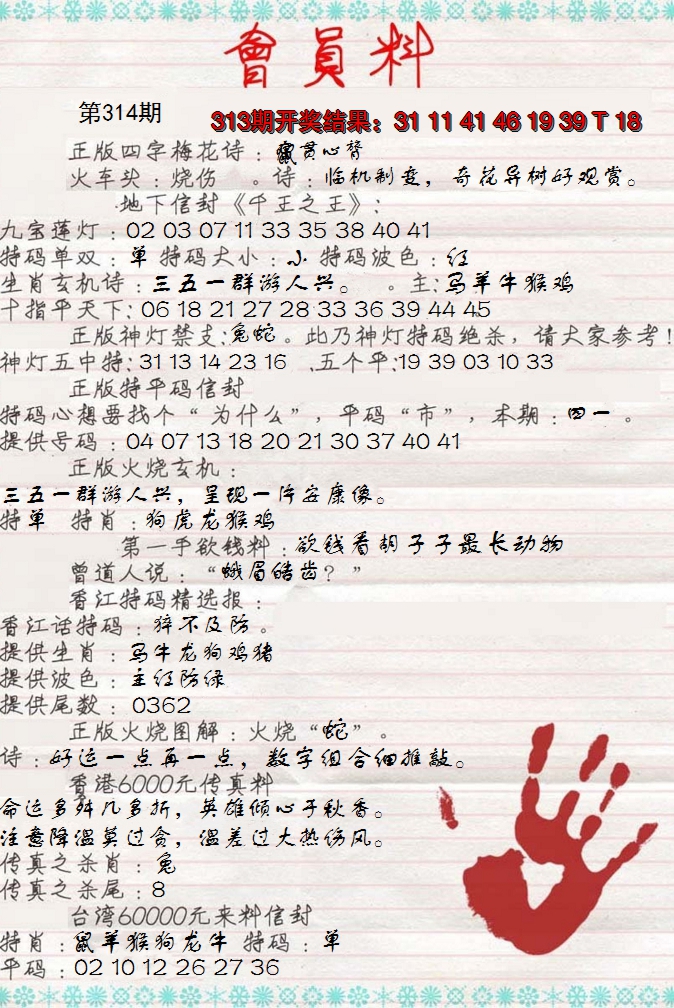 會員料
第314期
313期开奖结果：31 11 41 46 19 39 T 18
正版四字梅花诗：鼠贯心臂
火车头：烧伤 。诗：临机制变，奇花异树好观赏。
地下信封《千王之王》：
九宝莲灯：02 03 07 11 33 35 38 40 41
特码单双：单 特码大小：小 特码波色：红
生肖玄机诗：三五一群游人兴。 。主：马羊牛猴鸡
十指平天下：06 18 21 27 28 33 36 39 44 45
正版神灯禁支：兔蛇。此乃神灯特码绝杀，请大家参考！
神灯五中特：31 13 14 23 16 .五个平：19 39 03 10 33
正版特平码信封
特码心想要找个“为什么”，平码“市”，本期：四一 。
提供号码：04 07 13 18 20 21 30 37 40 41
正版火烧玄机：
三五一群游人兴，呈现一片安康像。
特单 特肖：狗虎龙猴鸡
第一手欲钱料：欲钱看胡子子最长动物
曾道人说：“蛾眉皓齿？”
香江特码精选报：
香江话特码：猝不及防。
提供生肖：马牛龙狗鸡猪
提供波色：主红防绿
提供尾数：0362
正版火烧图解：火烧“蛇”。
诗：好运一点再一点，数字组合细推敲。
香港6000元传真料
命运多舛几多折，英雄倾心于秋香。
注意降温莫过贪，温差过大热伤风。
传真之杀肖：兔
传真之杀尾：8
台湾60000元来料信封
特肖：鼠羊猴狗龙牛 特码：单
平码：02 10 12 26 27 36